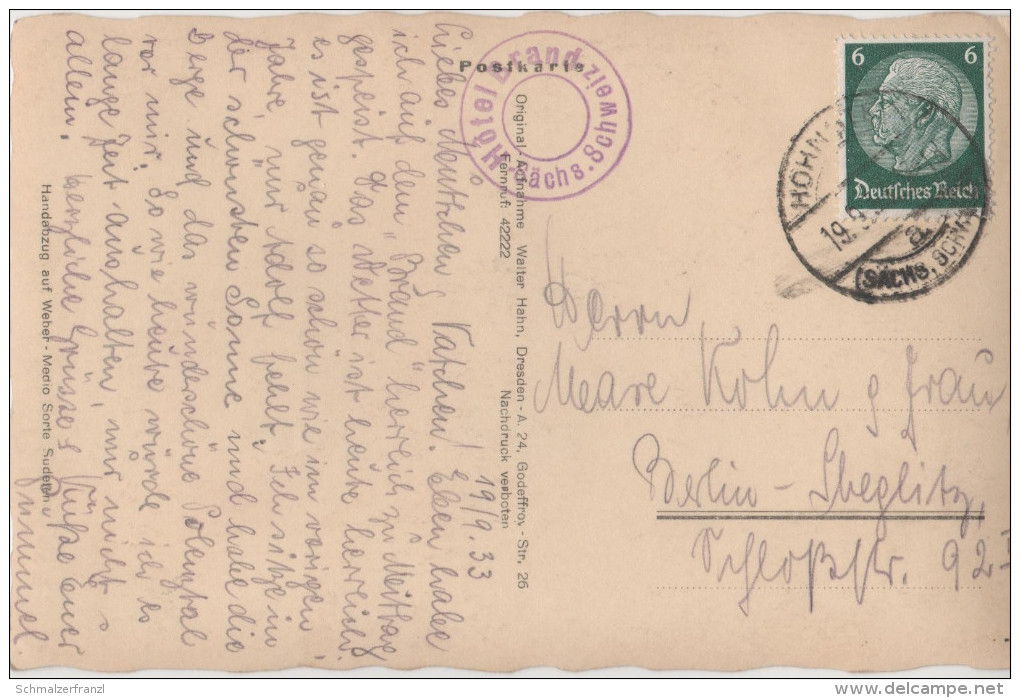 19/9.33
Liebes Muttchen & Vatchen! Eben habe
ich auf dem "Brand" herrlich zu Mittag
gespeist. Das Wetter ist heute herrlich
es ist genau so schön wie im vorigen
Jahre, nur Adolf fehlt. Ich sitze in
der schönsten Sonne und habe die
Berge und das wunderschöne Polenztal
vor mir. So wie heute würde ich es
lange Zeit aushalten, nur nicht so
allein. Herzliche Grüsse & Küße euer
Postkarte
Hotel Brand
Sächs. Schweiz
Original-Aufnahme Walter Hahn, Dresden-A. 24, Godeffroy-Str. 26
Fernruf: 42222
Nachdruck verboten
Handabzug auf Weber-Medio Sorte Sudeten
6 6
Deutsches Reich
19.9.
(SÄCHS. SCHW
Herrn
Kohn & Frau
Berlin-Steglitz
Schloßstr. 92
Schmalzerfranzl
delcampe.net